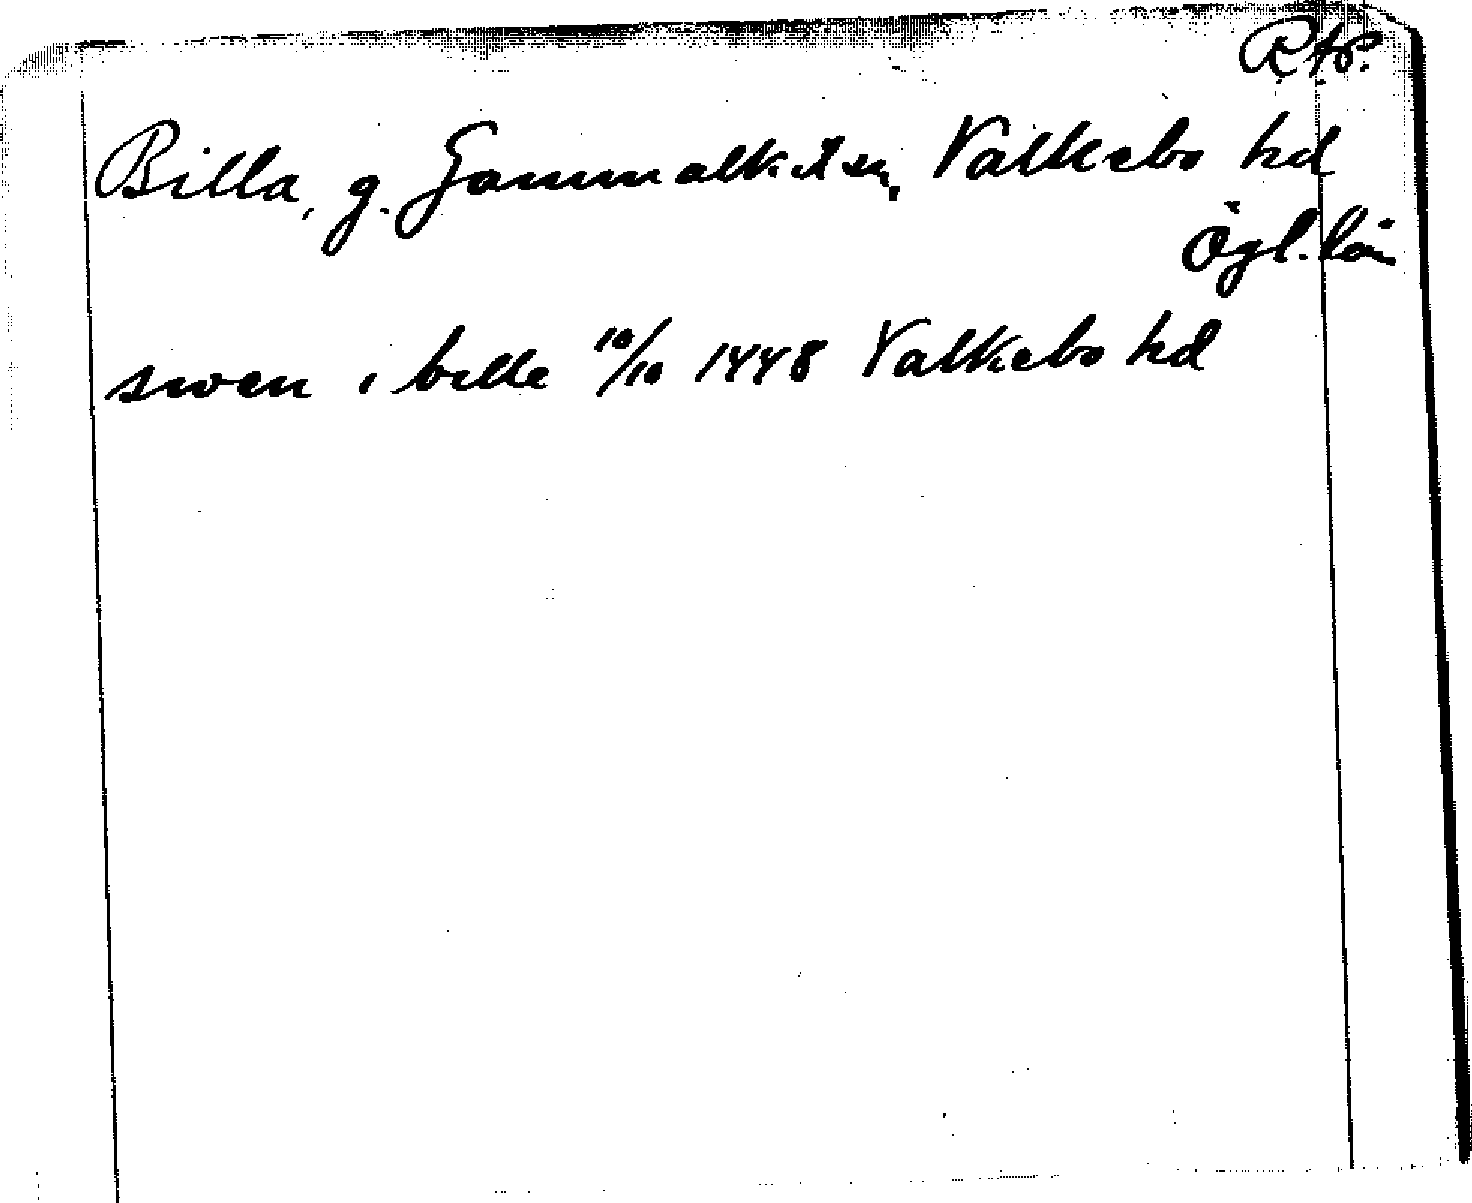 Billa, g. Gammalkil sn, Valkebo hd
Ögl. län
swen i bille 10/10 1448 Valkebo hd